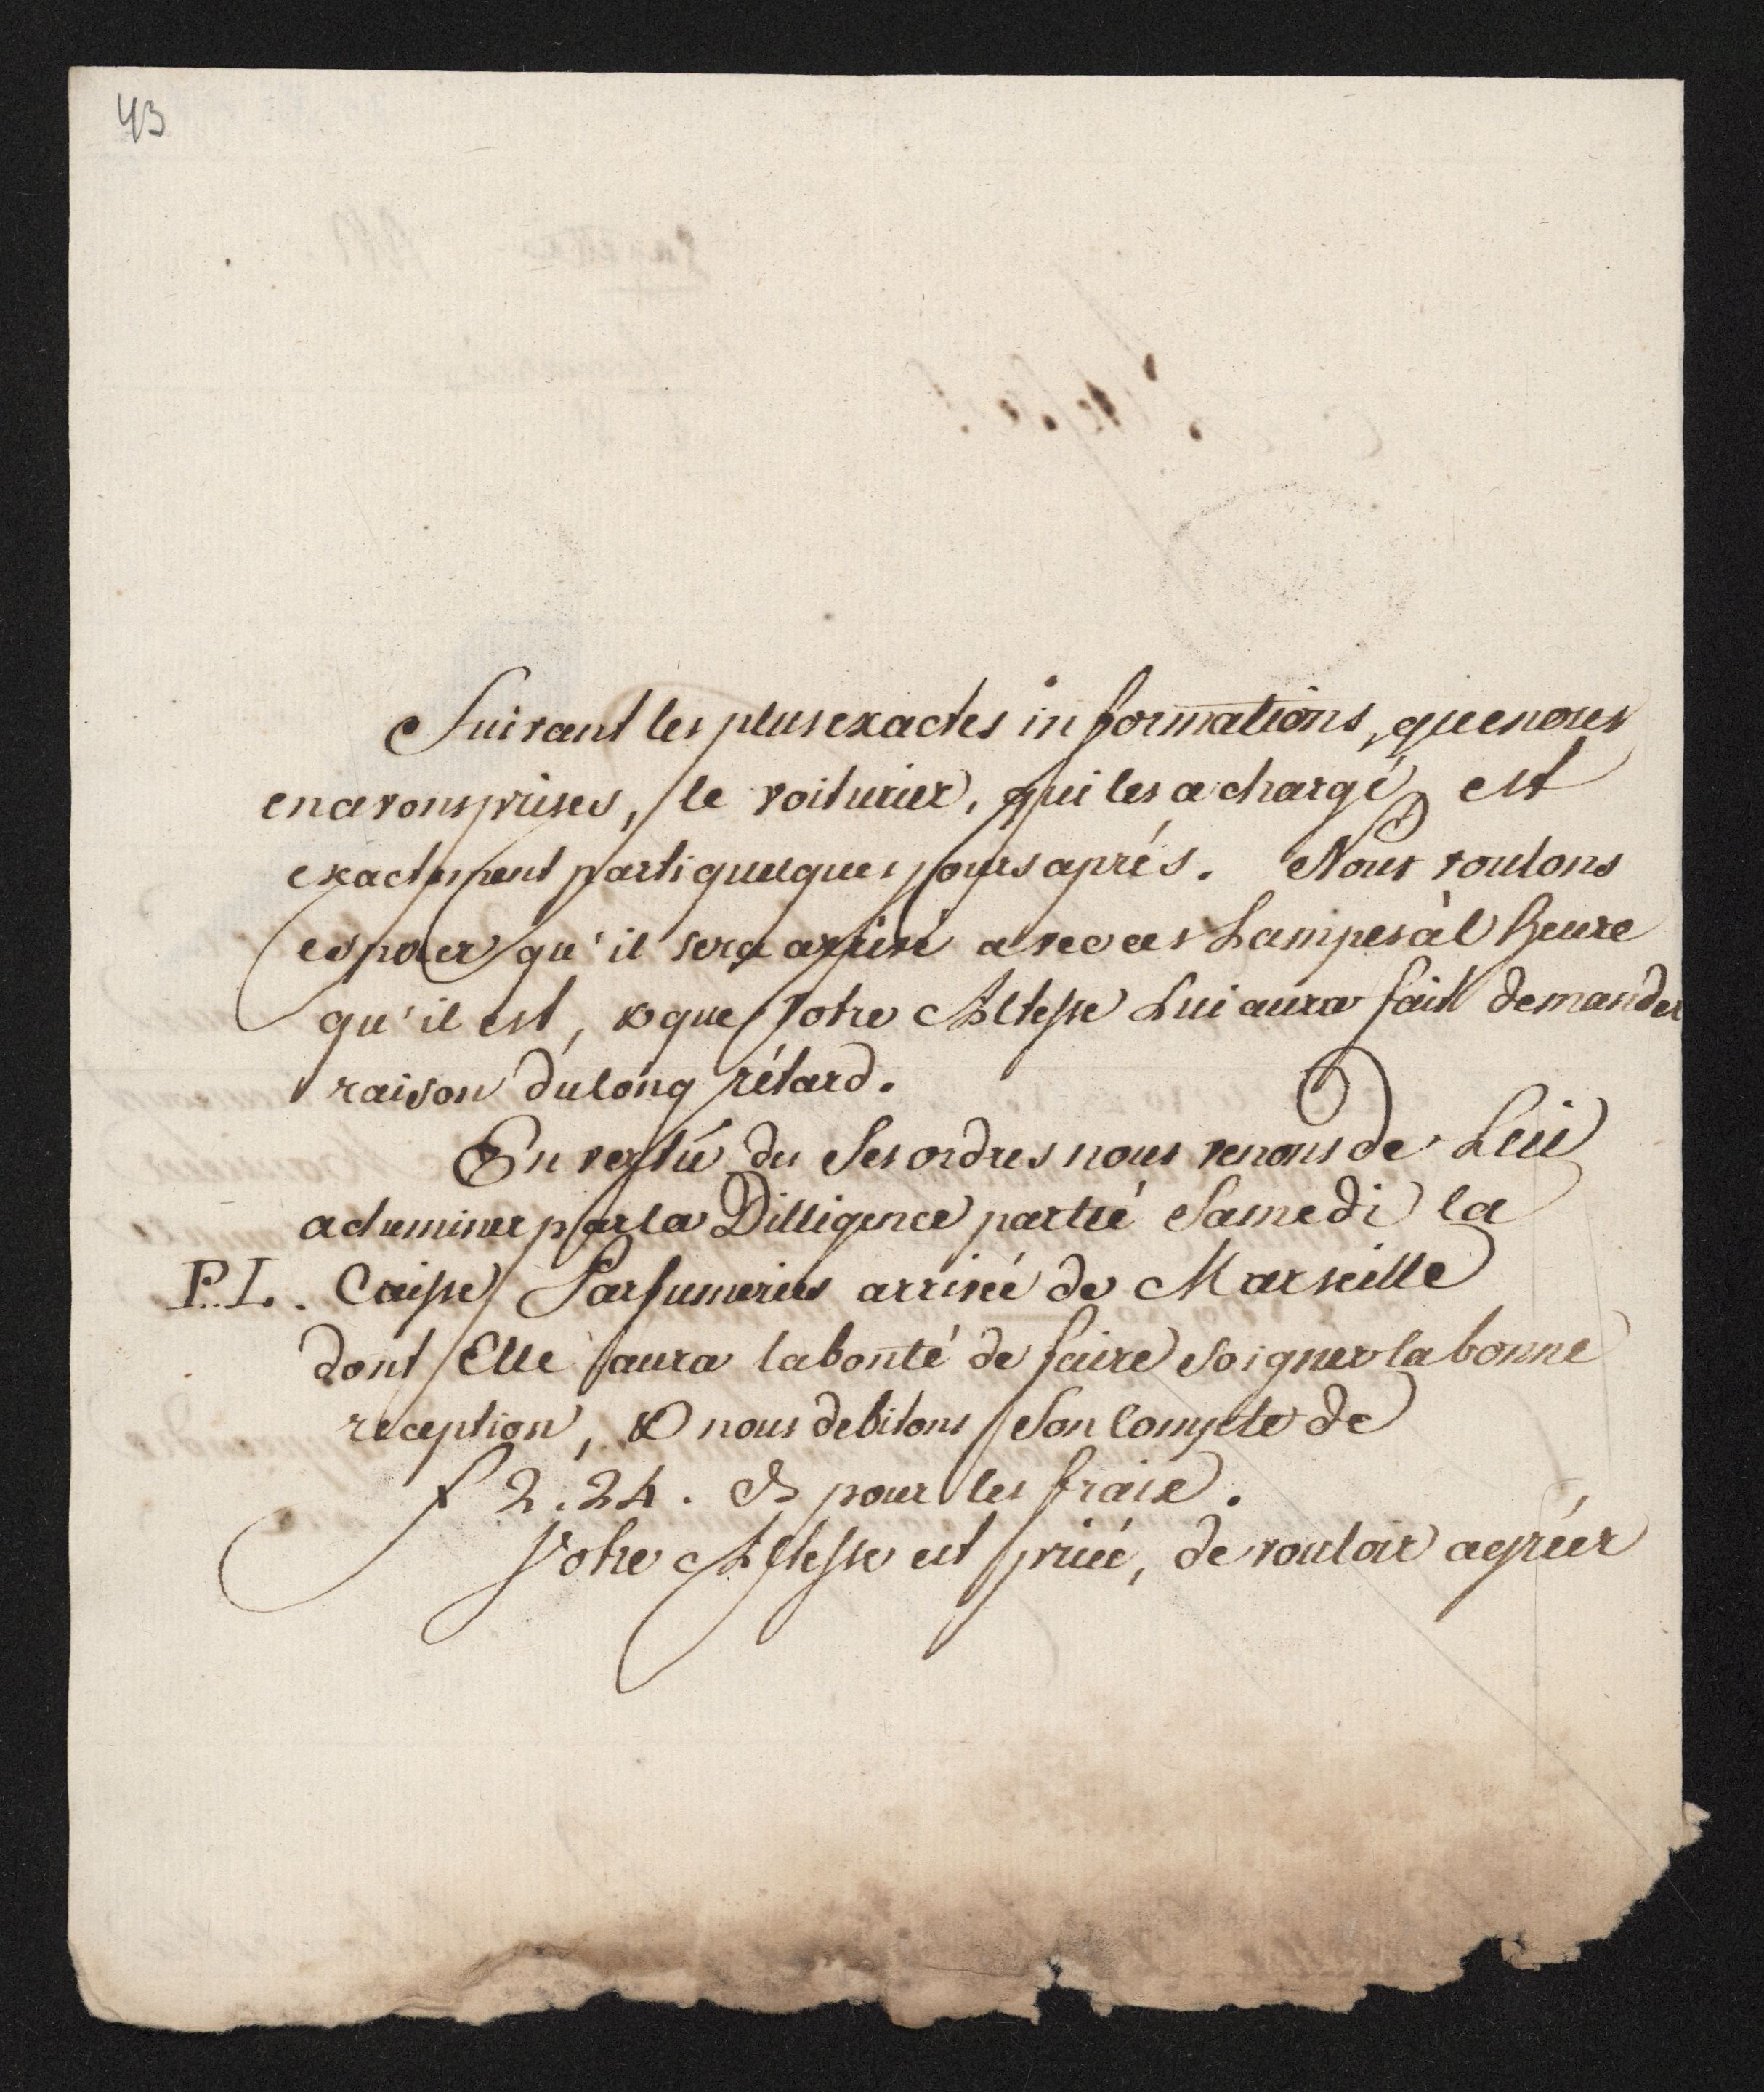 43
Suivant les plus exactes informations, que nous
en avons prises, le voiturier, qui les a chargé, est
exactement parti quelques jours aprés. Nous voulons
esperer qu'il sera arrivé avec ces Lampes à l heure
qu'il est, & que Votre Altesse Lui aura fait demander
raison du long rétard.
En vertû du Ses ordres nous venons de Lui
acheminer par la Dilligence partié Samedi la
P.L. Caisse Parfumeries arrivée de Marseille
dont Elle aura la bonté de faire soigner la bonne
reception, & nous debitons Son Compte de
f 2.24. pour les fraix.
Votre Altesse est priée, de vouloir agréer